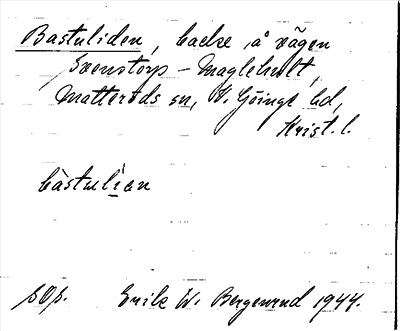 Bastuliden, backe å vägen
Svenstorp - Maglehult,
Matteröds sn, V. Göinge hd,
Krist. l.
bàstulìən
sOp. Erik W. Bergenrud 1944.